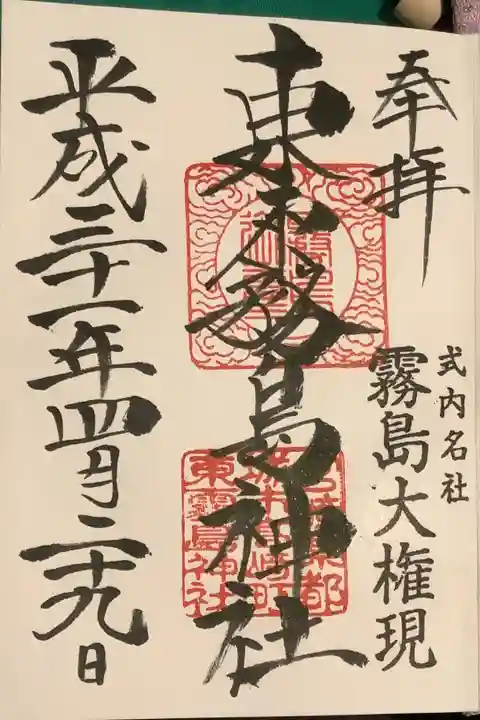 奉拝
式内名社
霧島大権現
東霧島神社
東霧島神社
平成三十一年四月二十九日